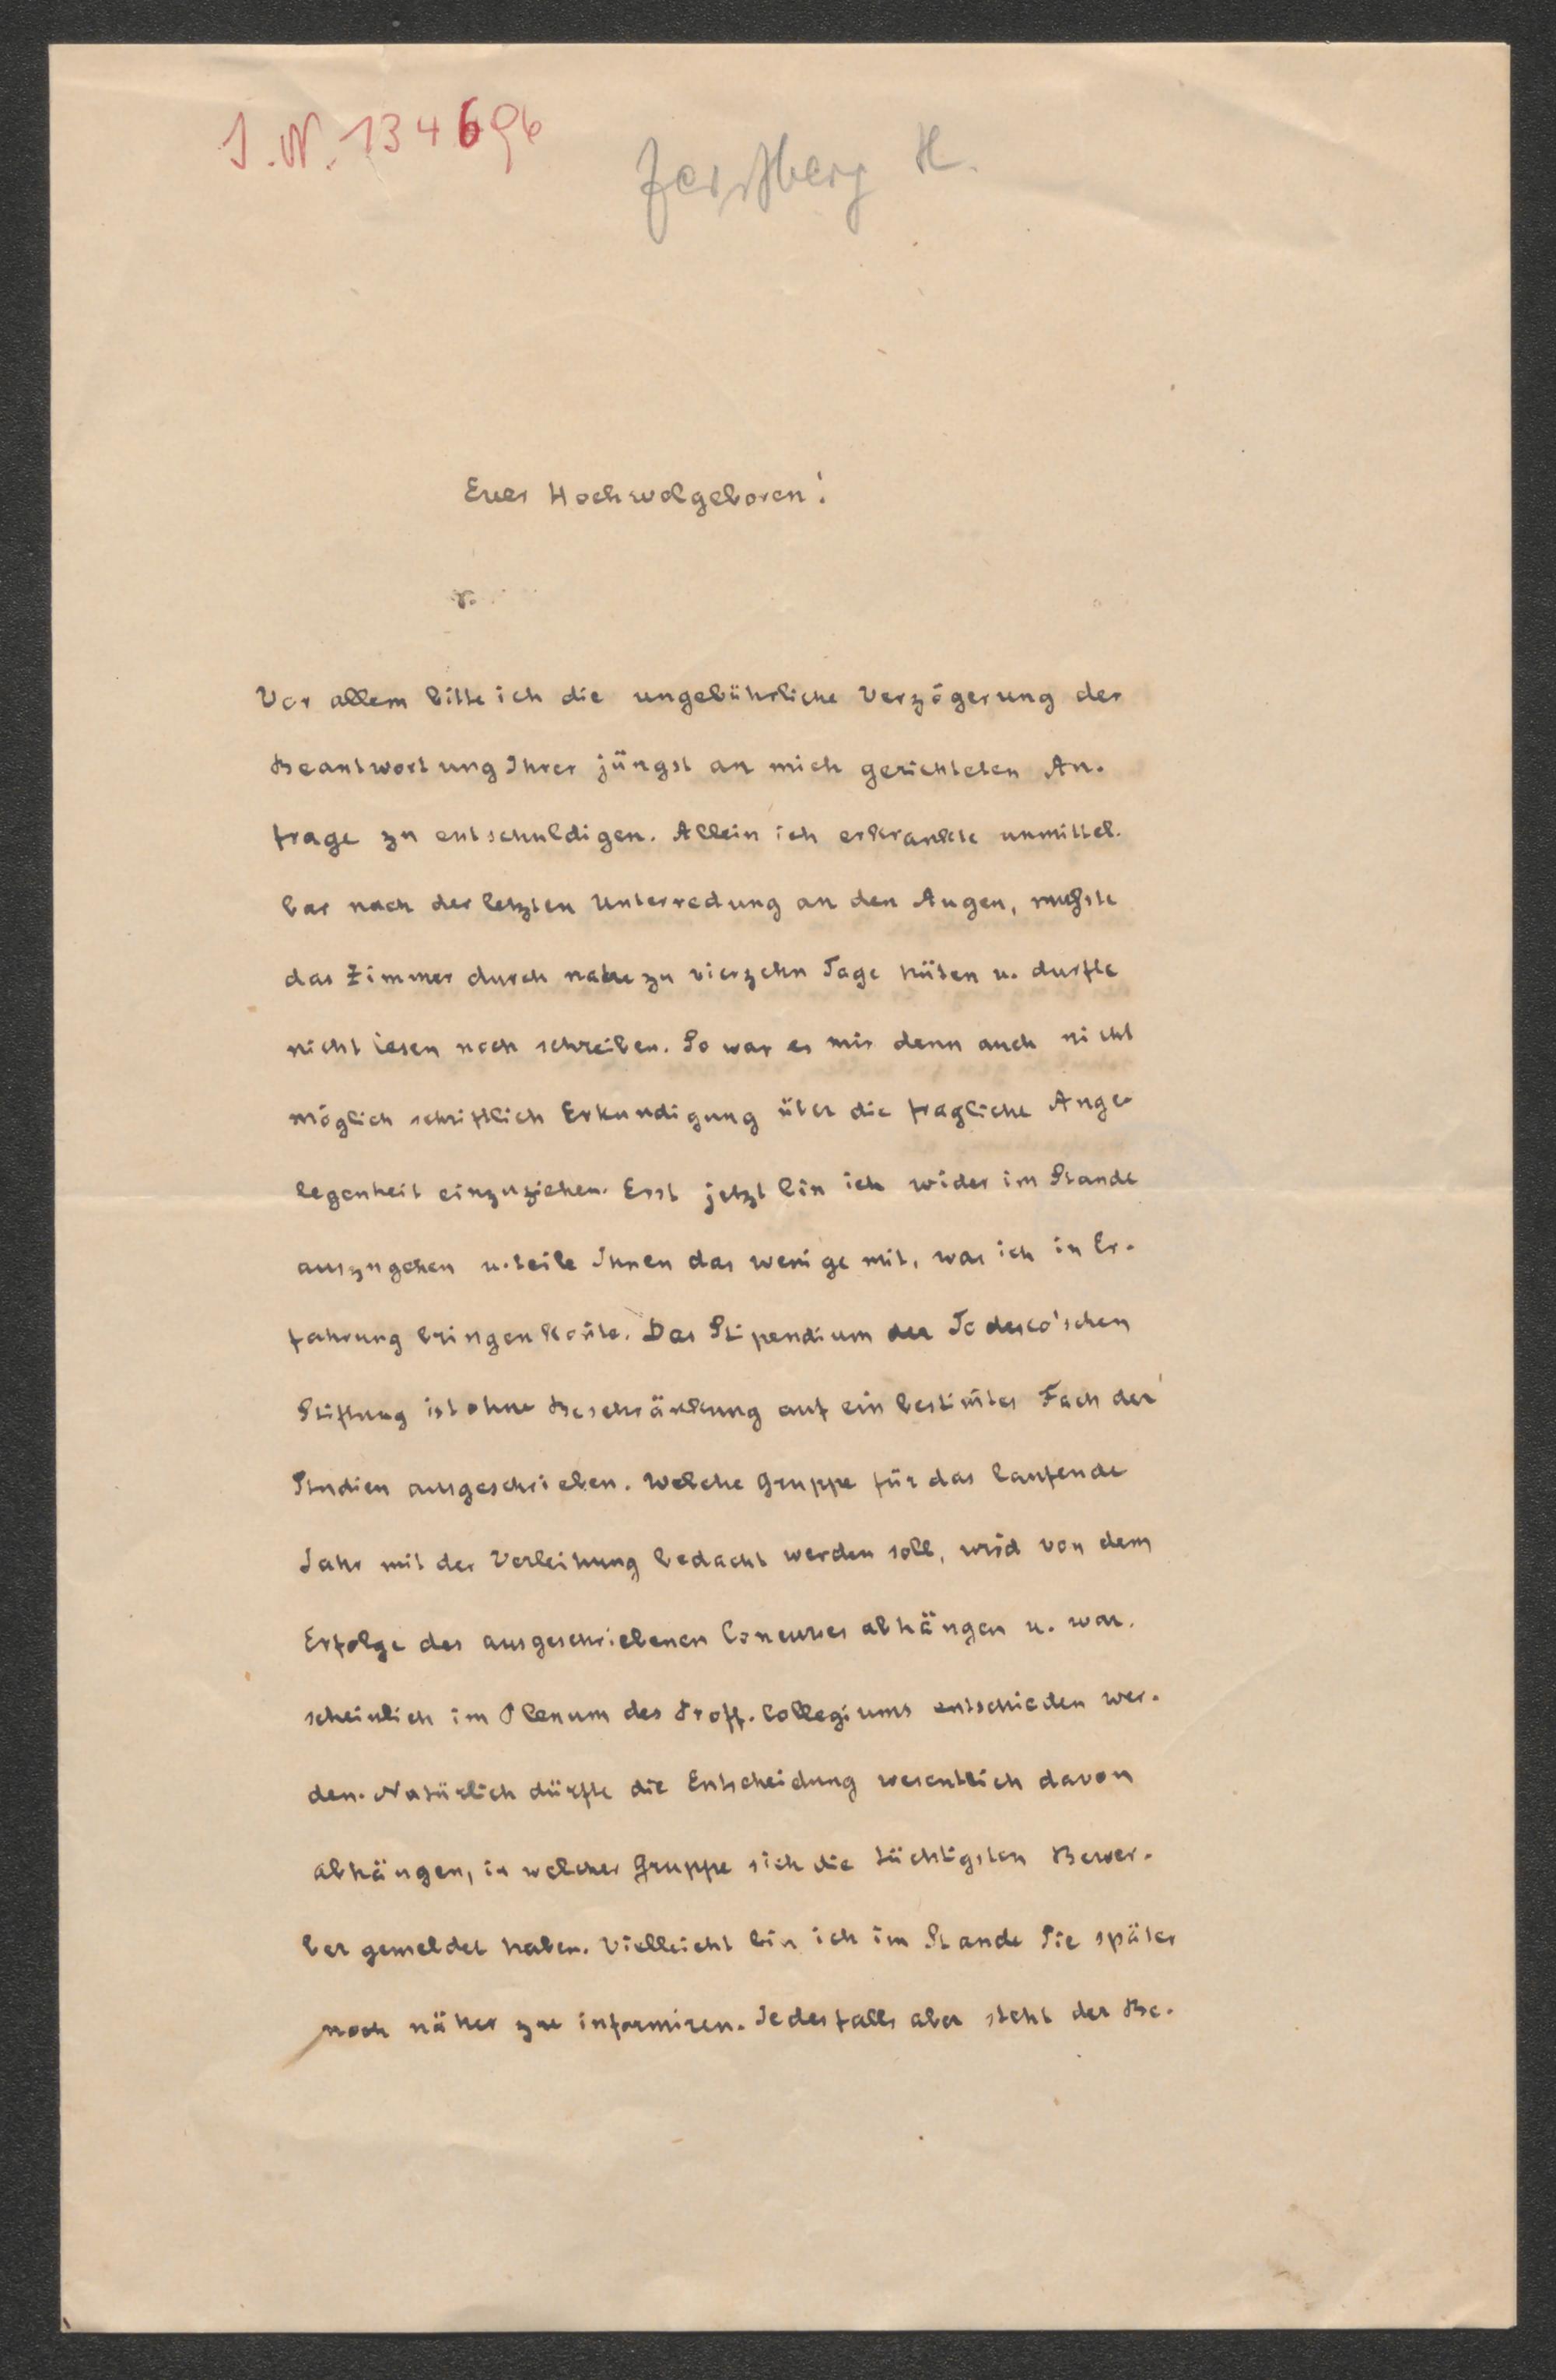 I.N. 134696
Zeissberg H.
Euer Hochwolgeboren!
Vor allem bitte ich die ungebührliche Verzögerung der
Beantwortung Ihrer jüngst an mich gerichteten An-
frage zu entschuldigen. Allein ich erkrankte unmittel-
bar nach der letzten Unterredung an den Augen, mußte
das Zimmer durch nahezu vierzehn Tage hüten u. durfte
nicht lesen noch schreiben. So war es mir denn auch nicht
möglich schriftlich Erkundigung über die fragliche Ange-
legenheit einzuziehen. Erst jetzt bin ich wider im Stande
auszugehen u. teile Ihnen das wenige mit, was ich in Er-
fahrung bringen kon̄te. Das Stipendium der Todesco'schen
Stiftung ist ohne Beschränkung auf ein bestim̄tes Fach der
Studien ausgeschrieben. Welche Gruppe für das laufende
Jahr mit der Verleihung bedacht werden soll, wird von dem
Erfolge des ausgeschriebenen Concurses abhängen u. war-
scheinlich im Plenum des Proff. Collegiums entschieden wer-
den. Natürlich dürfte die Entscheidung wesentlich davon
abhängen, in welcher Gruppe sich die tüchtigsten Bewer-
ber gemeldet haben. Vielleicht bin ich im Stande Sie später
noch näher zu informiren. Jedesfalls aber steht der Be-